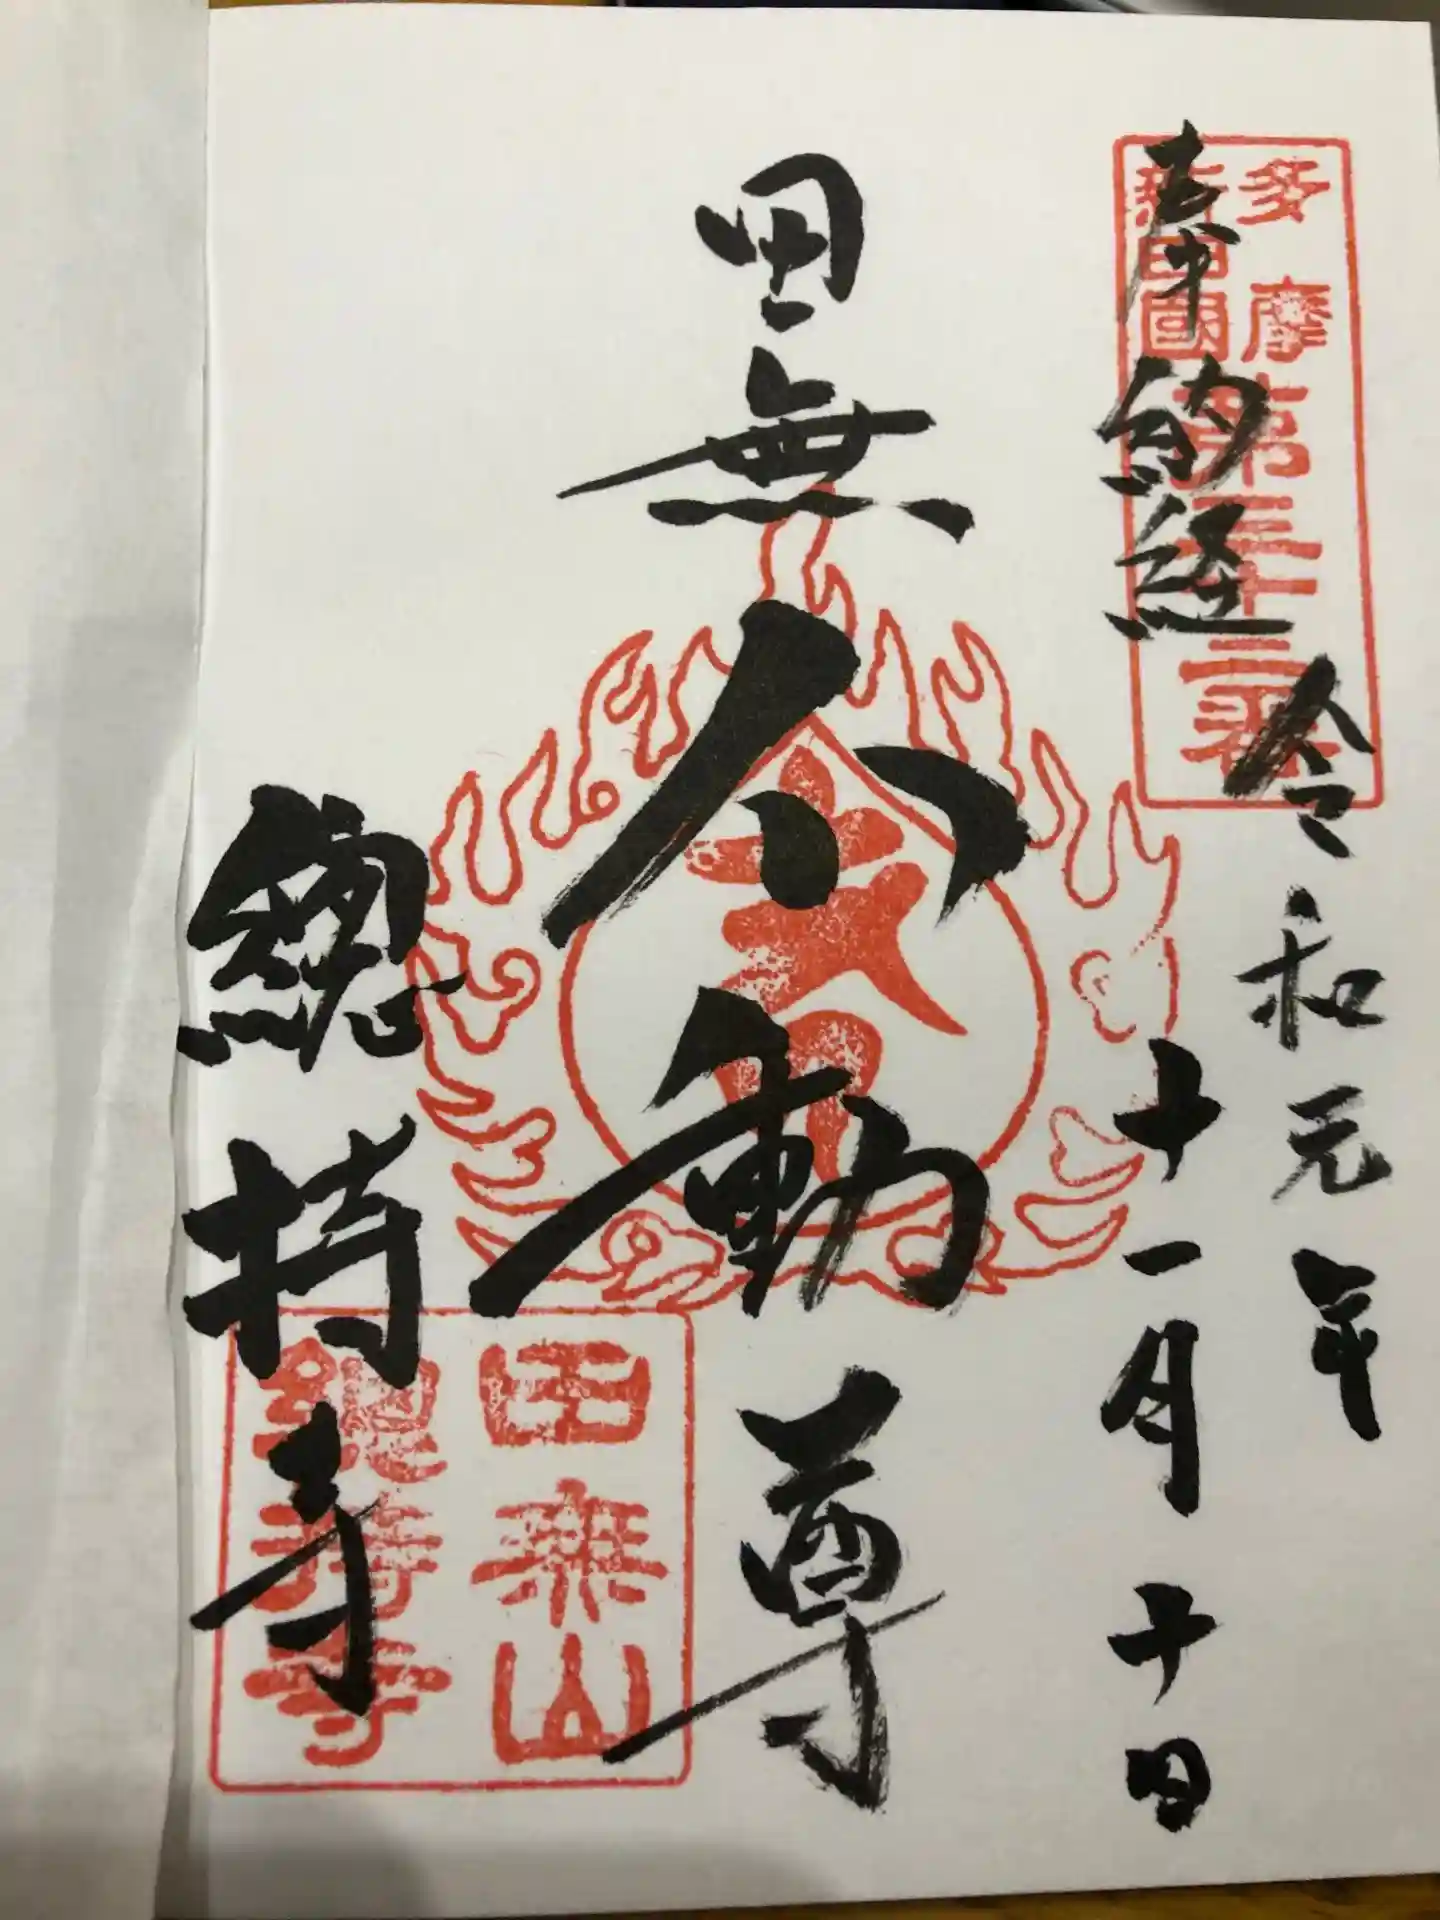 多摩
新四國
第三十二番
奉納経
令和元年
十一月十日
田無
不動尊
總持寺
田無山
總持寺